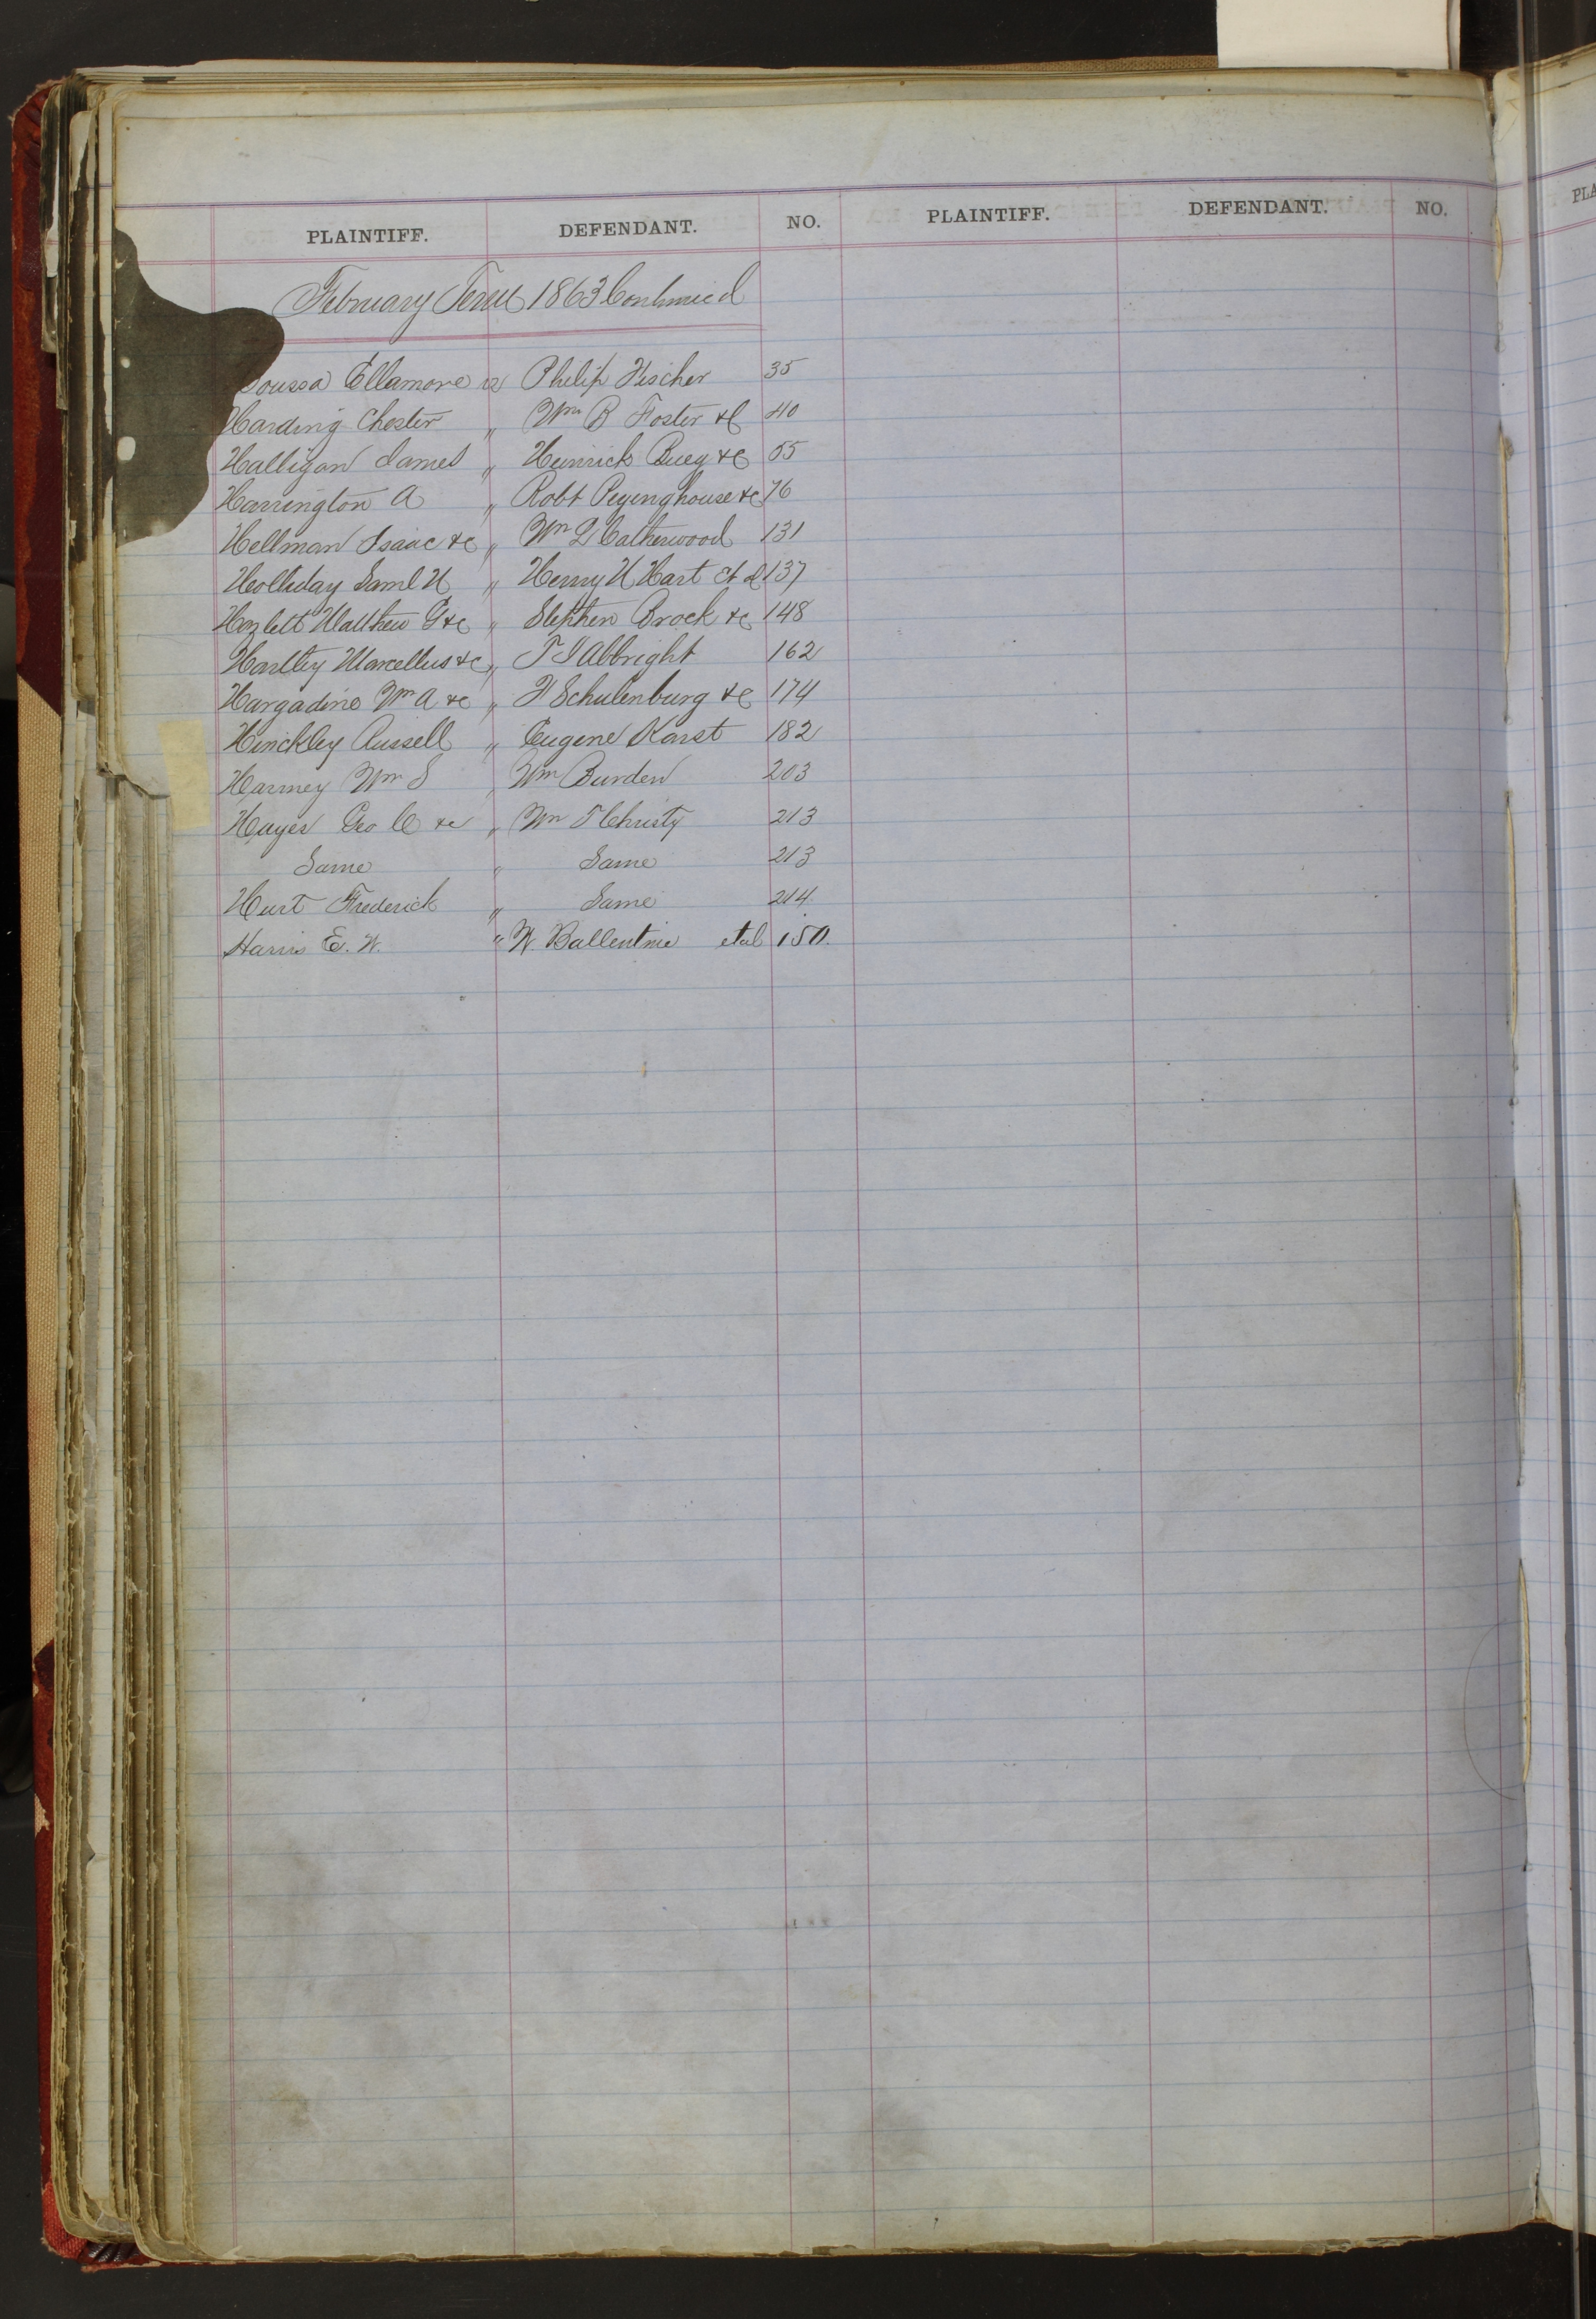 PLAINTIFF. DEFENDANT. NO. PLAINTIFF. DEFENDANT. NO.
PLA
February Term 1863 Continued
oussa Ellamore vs Philip Fischer 35
Harding Chester " Wm B Foster &c 40
Halligan James " Heinrich &c 55
Harrington A " Robt &c 76
Hellman Isaac &c " Wm Catherwood 131
Holliday Saml H " Henry H Hart et al 137
Hazlett Matthew G &c " Stephen Brock &c 148
Hartley Marcellus &c " T J Albright 162
Hargadine Wm A &c " F Schulenburg &c 174
Hinckley Russell " Eugene Karst 182
Harney Wm S " Wm Burden 203
Hayes Geo C &c " Wm T Christy 213
Same " Same 213
Hurt Frederick " Same 214
Harris E. W. " W. Ballentine et al 150.